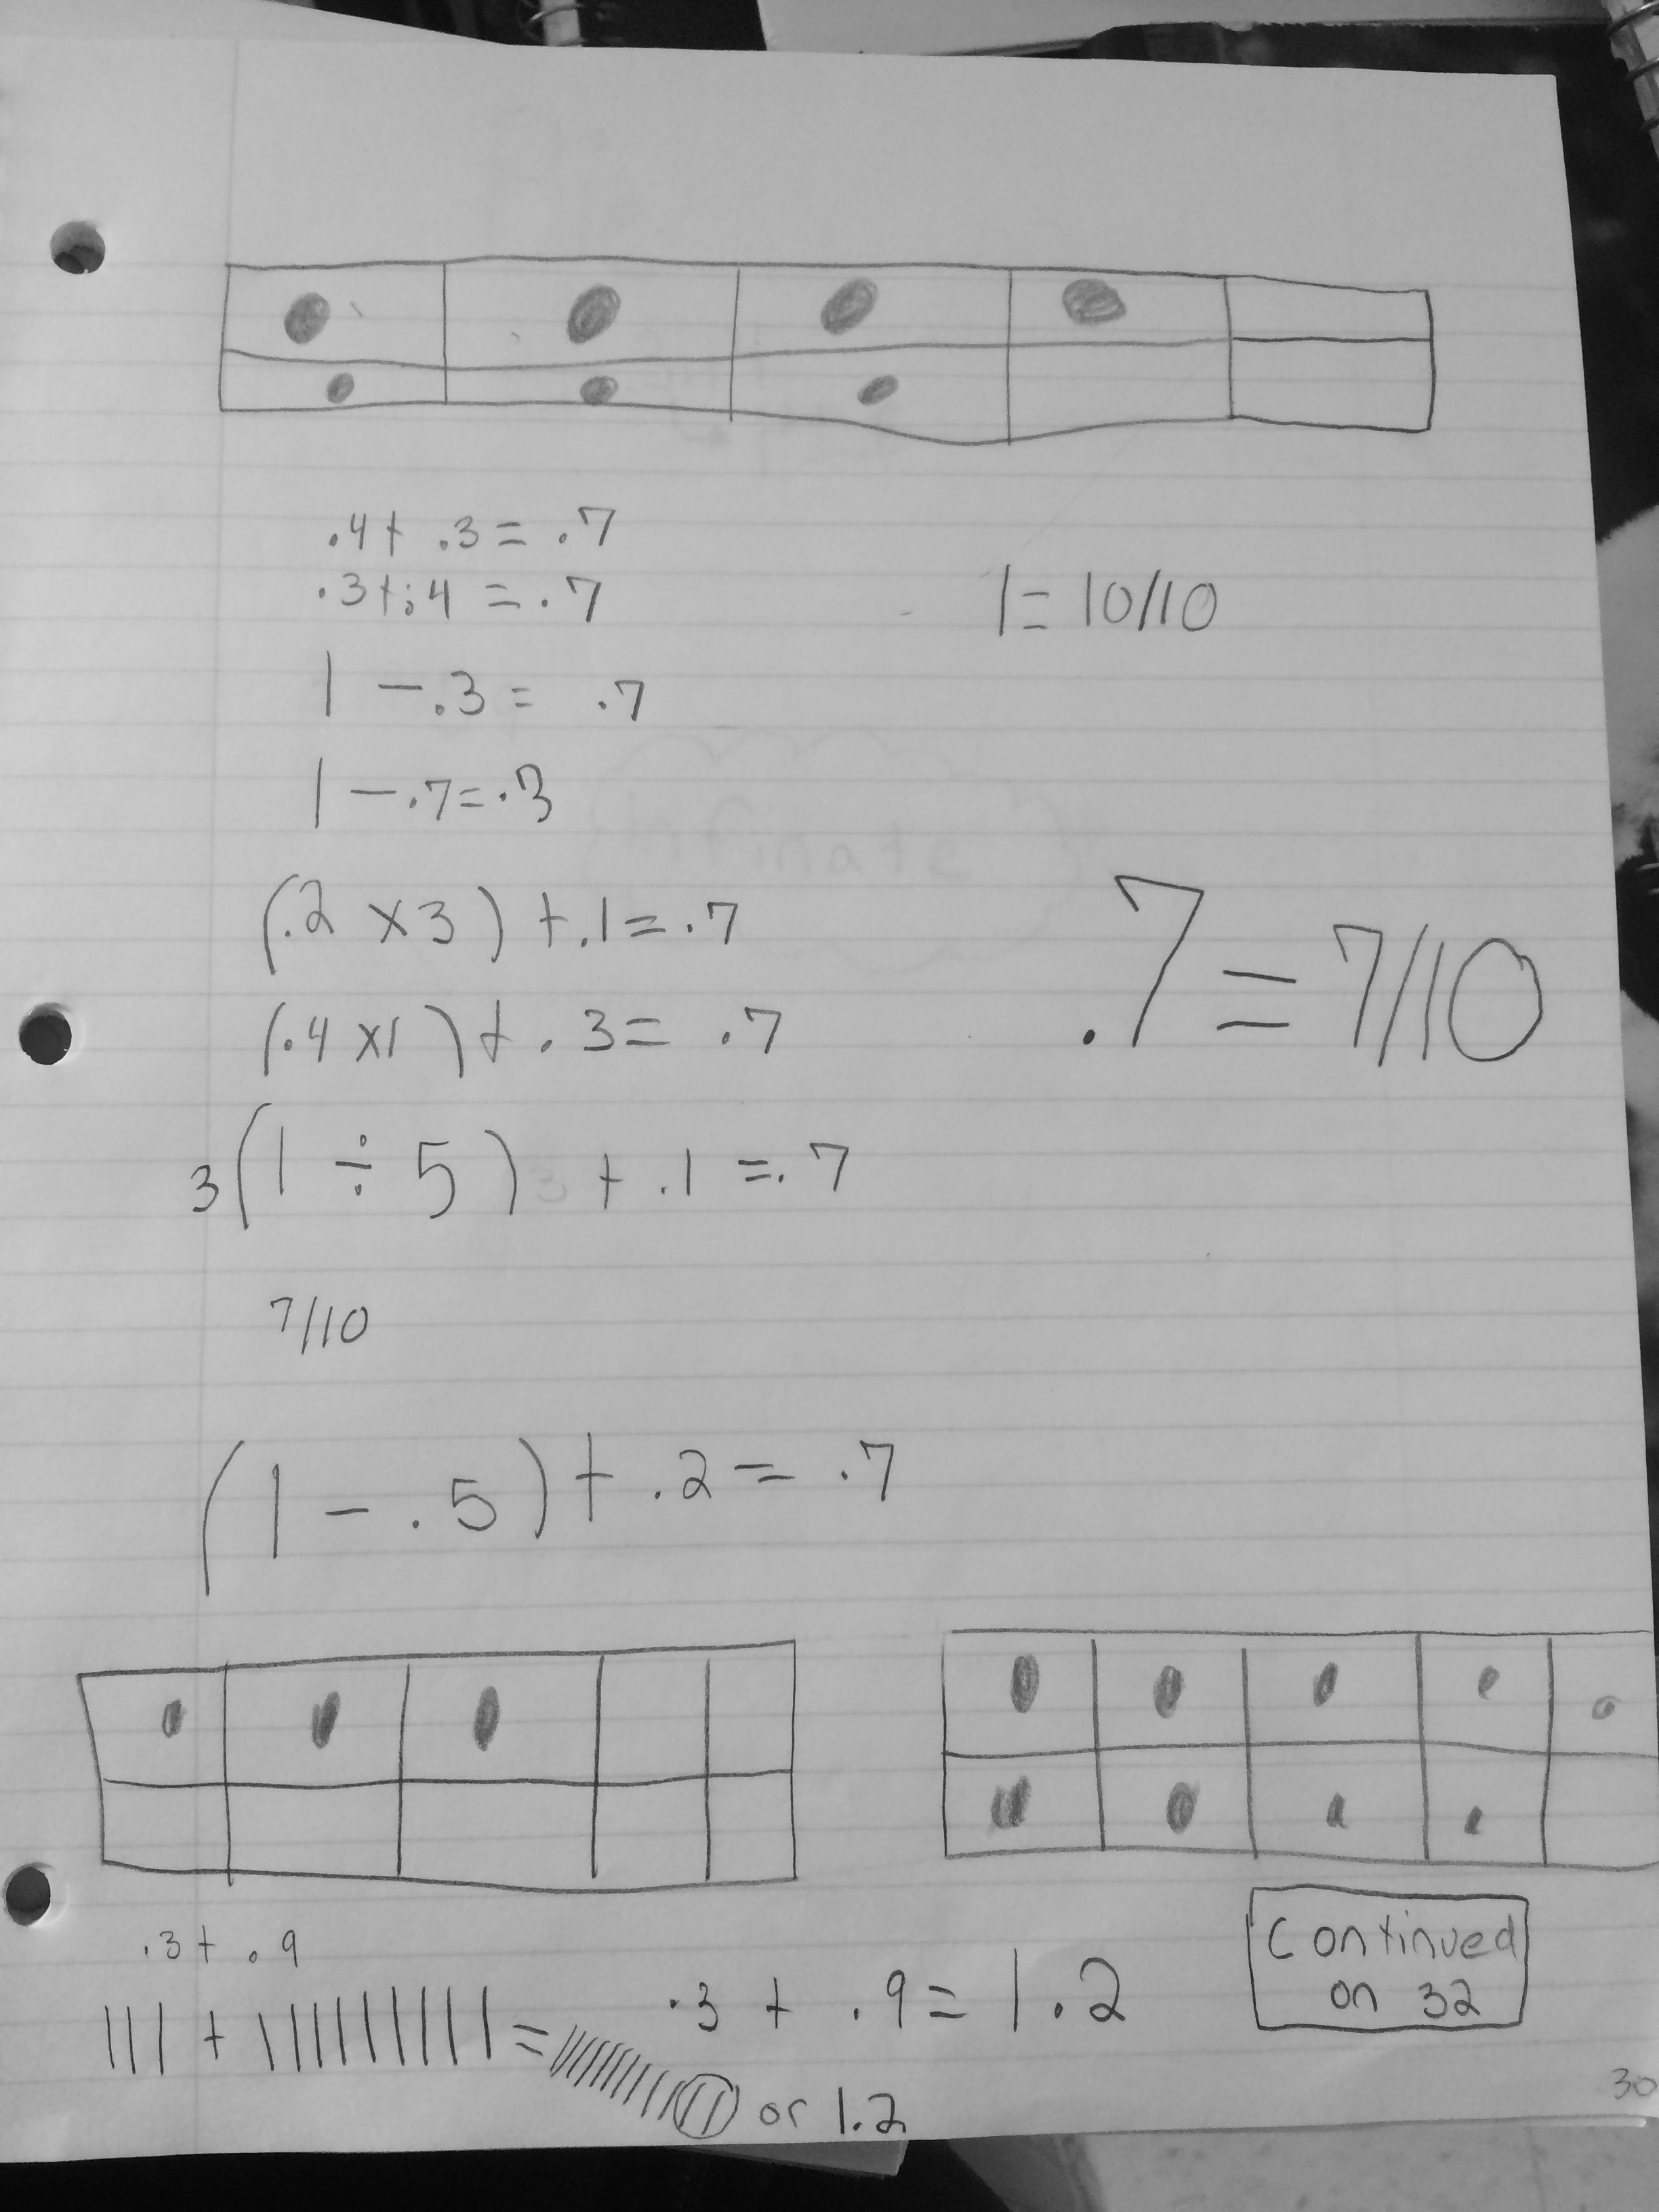 .4 + .3 = .7
.3 + .4 = .7
1 = 10/10
1 - .3 = .7
1 - .7 = .3
(.2 x 3) + .1 = .7
.7 = 7/10
(.4 x 1) + .3 = .7
3(1 ÷ 5) + .1 = .7
7/10
(1 - .5) + .2 = .7
.3 + .9
.3 + .9 = 1.2
or 1.2
Continued
on 32
30